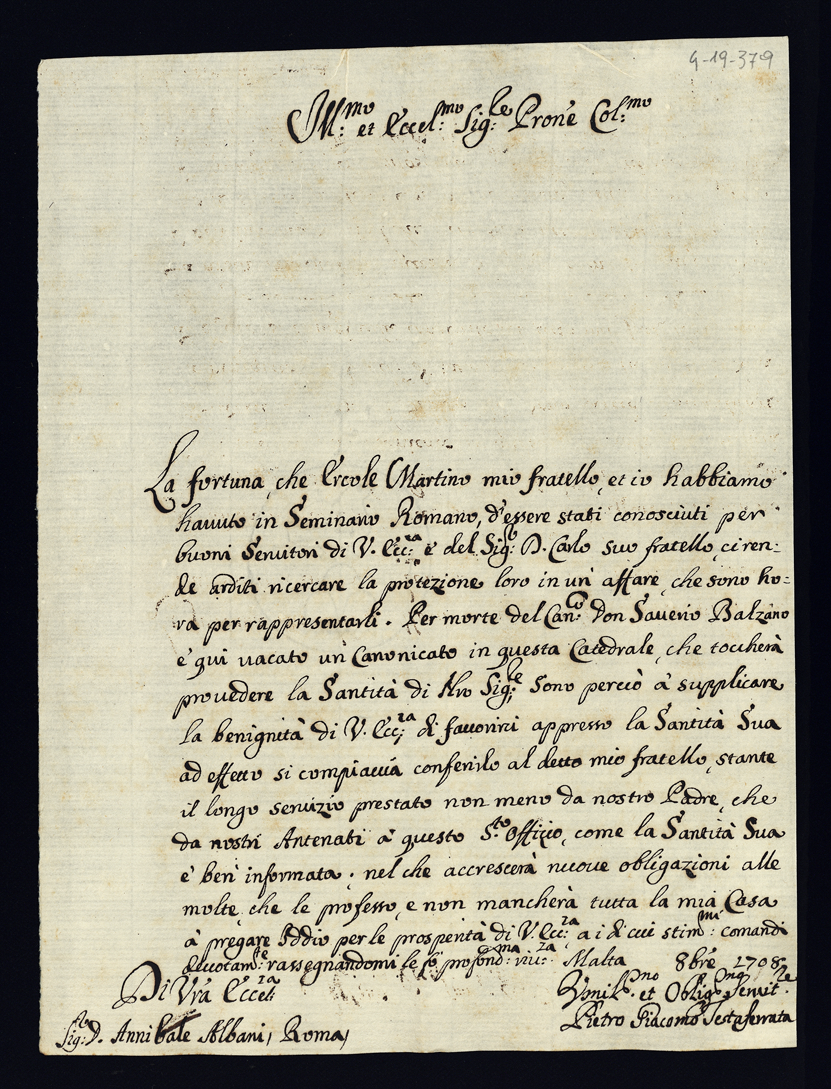 4-19-379
Ill:mo et Eccel:mo Sig:re Prone Col:mo
La fortuna, che Ercole Martino mio fratello, et io habbiamo
havuto in Seminario Romano, d'essere stati conosciuti per
buoni Servitori di V. Ecc:za e del Sig:r D. Carlo suo fratello, ci ren=
de arditi ricercare la protezione loro in un affare, che sono ho=
ra per rappresentarli. Per morte del Can:co Don Saverio Balzano
e' qui vacato un Canonicato in questa Catedrale, che toccherà
provedere la Santità di Nro Sig:re Sono perciò à supplicare
la benignità di V. Ecc:za di favorirci appresso la Santità Sua
ad effetto si compiaccia conferirlo al detto mio fratello, stante
il longo servizio prestato non meno da nostro Padre, che
da nostri Antenati à questo S:to Offizio, come la Santità Sua
e' ben informata; nel che accrescerà nuove obligazioni alle
molte, che le professo, e non mancherà tutta la mia Casa
à pregare Iddio per le prosperità di V. Ecc:za a i di cui stim:mi comandi
devotam:te rassegnandomi le fò profond:ma riv:za Malta 8bre 1708
Di Vra Eccel:za
Umil:mo et Oblig:mo Servit:re
Pietro Giacomo Testaferrata
Sig: D. Annibale Albani, Roma,